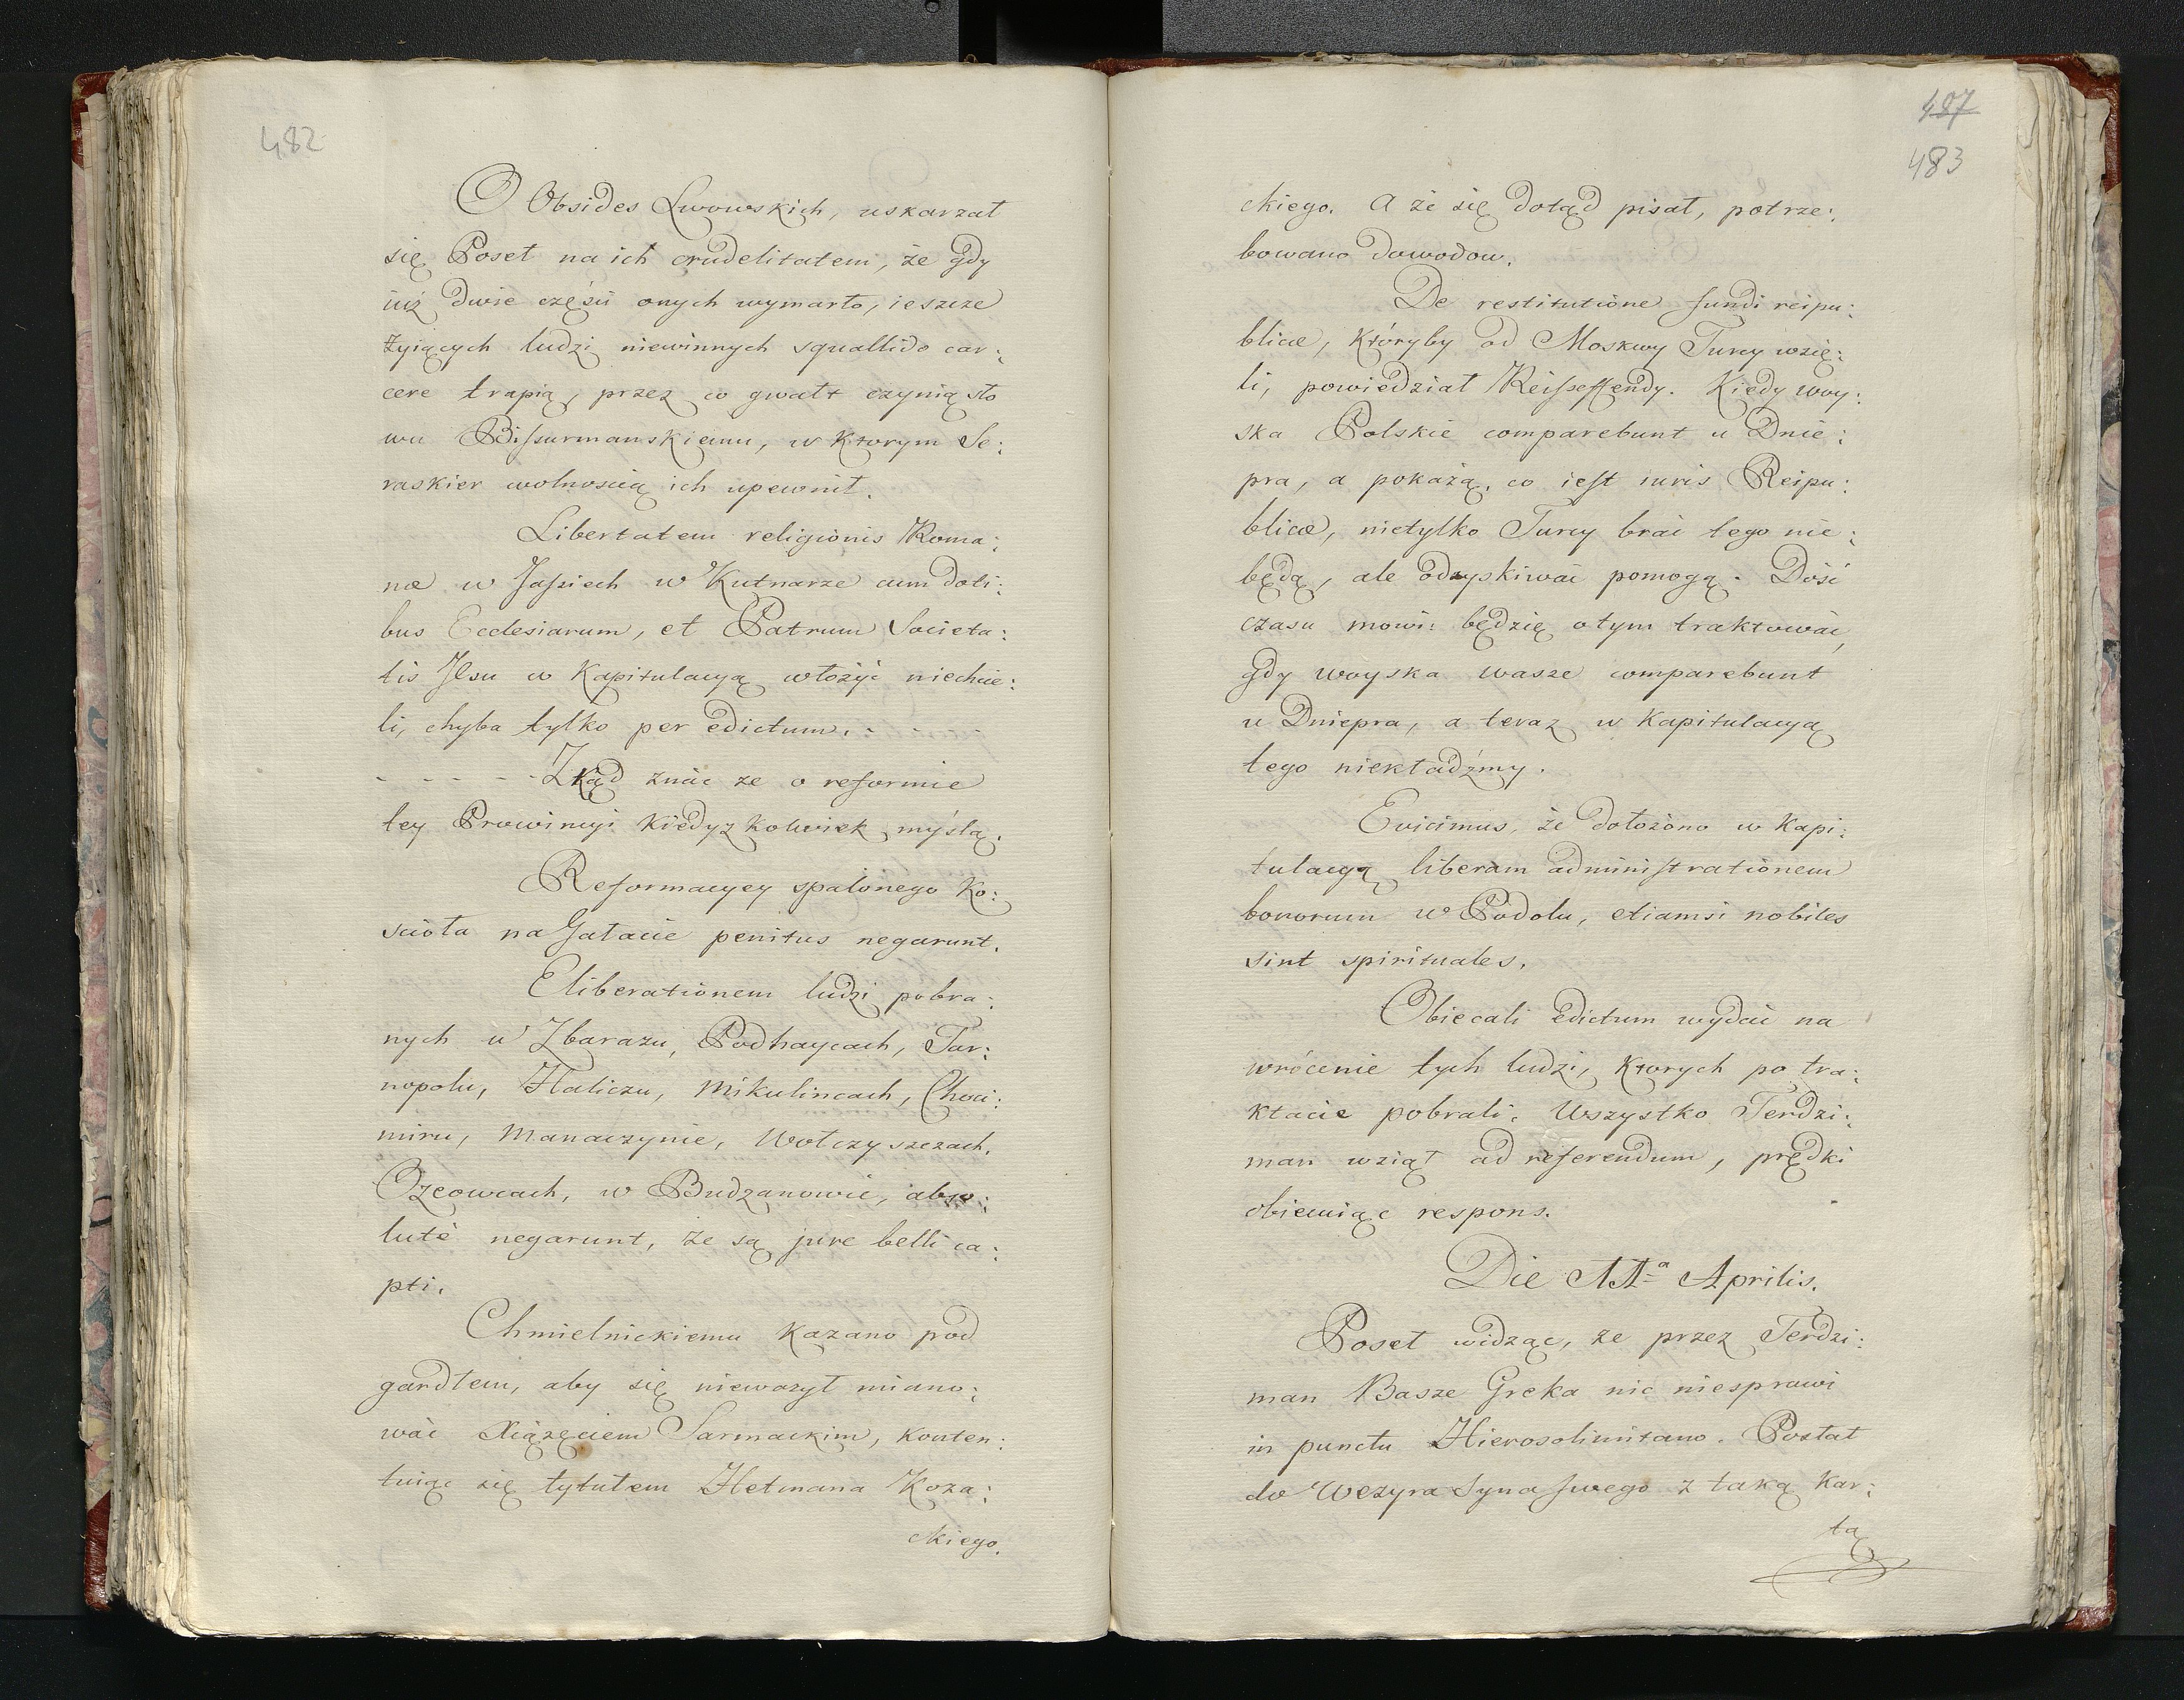 482
O Obsides Lwowskich, uskarzał
się Poseł na ich crudelitatem, że gdy
iuż dwie częsci onych wymarło, ieszcze
żyiących ludzi niewinnych squallido car:
cere trapią, przez co gwałt czynią sło
wu Bissurmanskiemu, w ktorym Se:
raskier wolnoscią ich upewnił.
Libertatem religionis Roma:
næ w Jassiech w Kutnarze cum doti:
bus Ecclesiarum, et Patrum Societa:
tis Jesu w Kapitulacyą włożyć niechcie:
li, chyba tylko per edictum. - - - -
- - - - - Zkąd znac ze o reformie
tey Prowincyi kiedyzkolwiek myślą.
Reformacyey spalonego Ko:
scioła na Galacie penitus negarunt.
Eliberationem ludzi pobra:
nych w Zbarazu, Podhaycach, Tar:
nopolu, Haliczu, Mikulincach, Choci:
miru, Manaczynie, Wołczyszczach.
Ozeowcach, w Budzanowie, abso:
lutè negarunt, że są jure belli ca:
pti.
Chmielnickiemu kazano pod
gardłem, aby się nieważył miano:
wać Xiążęciem Sarmackim, konten:
tuiąc się tytułem Hetmana Koza:
ckiego.
487
483
ckiego. A że się dotąd pisał, potrze:
bowano dowodow.
De restitutione fundi reipu:
blicæ, któryby od Moskwy Turcy wzię:
li, powiedział Reisseffendy. Kiedy woy:
ska Polskie comparebunt u Dnie:
pra, a pokażą, co iest iuris Reipu:
blicæ, nietylko Turcy brać tego nie:
będą, ale odzyskiwać pomogą. Dość
czasu mowi: będzię otym traktować,
gdy woyska wasze comparebunt
u Dniepra, a teraz w Kapitulacyą
tego niekładźmy.
Evicimus, że dołożono w Kapi:
tulacyą liberam administrationem
bonorum w Podolu, etiamsi nobiles
sint spirituales.
Obiecali edictum wydać na
wrócenie tych ludzi, ktorych po tra:
ktacie pobrali. Wszystko Terdzi:
man wziął ad referendum, prędki
obiecuiąc respons.
Die 11ª Aprilis.
Poseł widząc, że przez Terdzi:
man Basze Greka nic niesprawi
in punctu Hierosolimitano. Posłał
do Wezyra Syna swego z taką kar:
tą